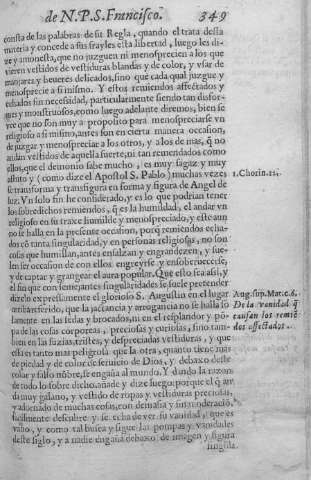 de N. P. S. Francisco. 349
consta de las palabras de su Regla, quando el trata desta
materia y concede a sus frayles esta libertad, luego les di-
ze y amonesta, que no juzguen ni menosprecien a los que
vieren vestidos de vestiduras blandas y de color, y vsar de
manjares y beueres delicados, sino que cada qual juzgue y
menosprecie a si mismo. Y estos remiendos affectados y
echados sin necessidad, particularmente siendo tan disfor-
mes y monstruosos, como luego adelante diremos, bien se
vee que no son muy a proposito para menospreciarse vn
religioso a si mismo, antes son en cierta manera occasion,
de juzgar y menospreciar a los otros, y a los de mas, q̃ no
andan vestidos de aquella suerte, ni tan remendados como
ellos, que el demonio sabe mucho, es muy sagaz y muy
astuto y (como dize el Apostol S. Pablo) muchas vezes
1. Chorin. 11.
se transforma y transfigura en forma y figura de Angel de
luz. Vn solo fin he considerado, y es lo que podrian tener
los sobredichos remiendos, q̃ es la humildad, el andar vn
religioso en su traxe humilde y menospreciado, y este aun
no se halla en la presente occasion, porq̃ remiendos echa-
dos cõ tanta singularidad, y en personas religiosas, no son
cosas que humillan, antes ensalzan y engrandecen, y sue-
len ser occasion de con ellos engreyrse y ensoberuecerse,
y de captar y grangear el aura popular. Que esto sea assi, y
el fin que con semejantes singularidades se suele pretender
dizelo expressamente el glorioso S. Augustin en el lugar
Aug. sup. Mat. c. 6.
arriba referido, que la jactancia y arrogancia no se halla so
De la vanidad q̃
lamente en las sedas y brocados, ni en el resplandor y põ
causan los remiẽ
pa de las cosas corporeas, preciosas y curiosas, sino tam-
dos affectados.
bien en las suzias, tristes, y despreciadas vestiduras, y que
esta es tanto mas peligrosa que la otra, quanto tiene mas
de piedad y de color de seruicio de Dios, y debaxo deste
color y falso nõbre, se engaña al mundo. Y dando la razon
de todo lo sobre dicho, añade y dize luego: porque el q̃ an
da muy galano, y vestido de ropas y vestiduras preciosas,
y adornado de muchas cosas, con demasia y sin razon
facilmente descubre y se echa de ver su vanidad, que es
vano, y como tal busca y sigue las pompas y vanidades
deste siglo, y a nadie engaña debaxo de imagen y figura